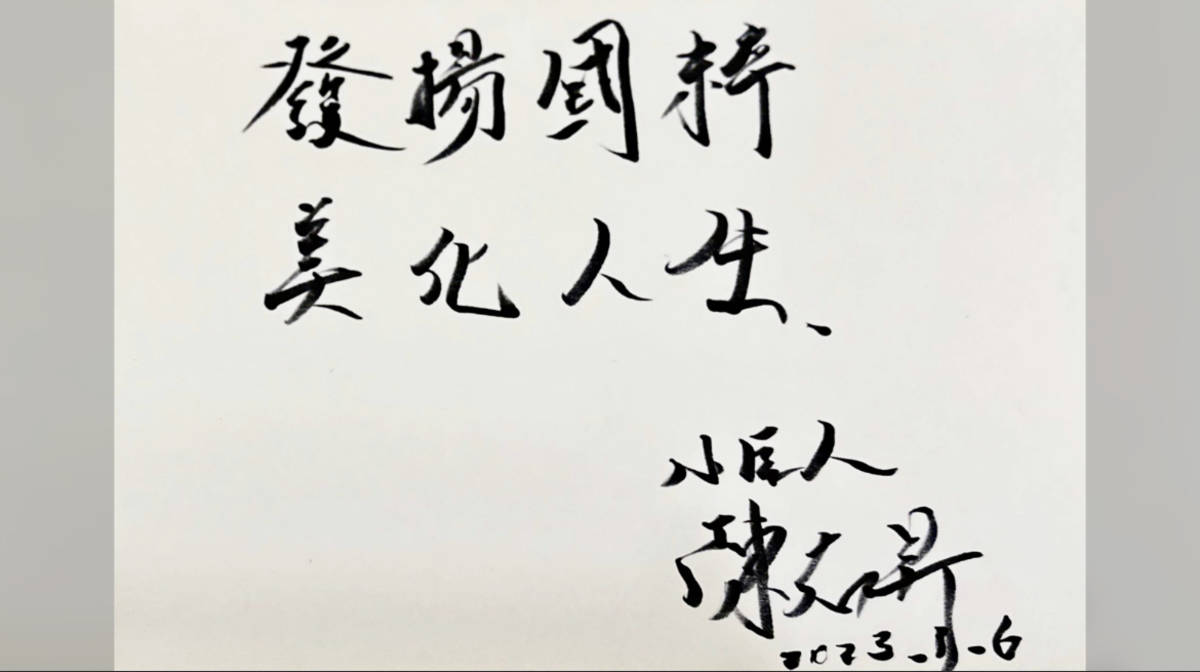 發揚國粹
美化人生、
小巨人
陳志昇
2023.11.6